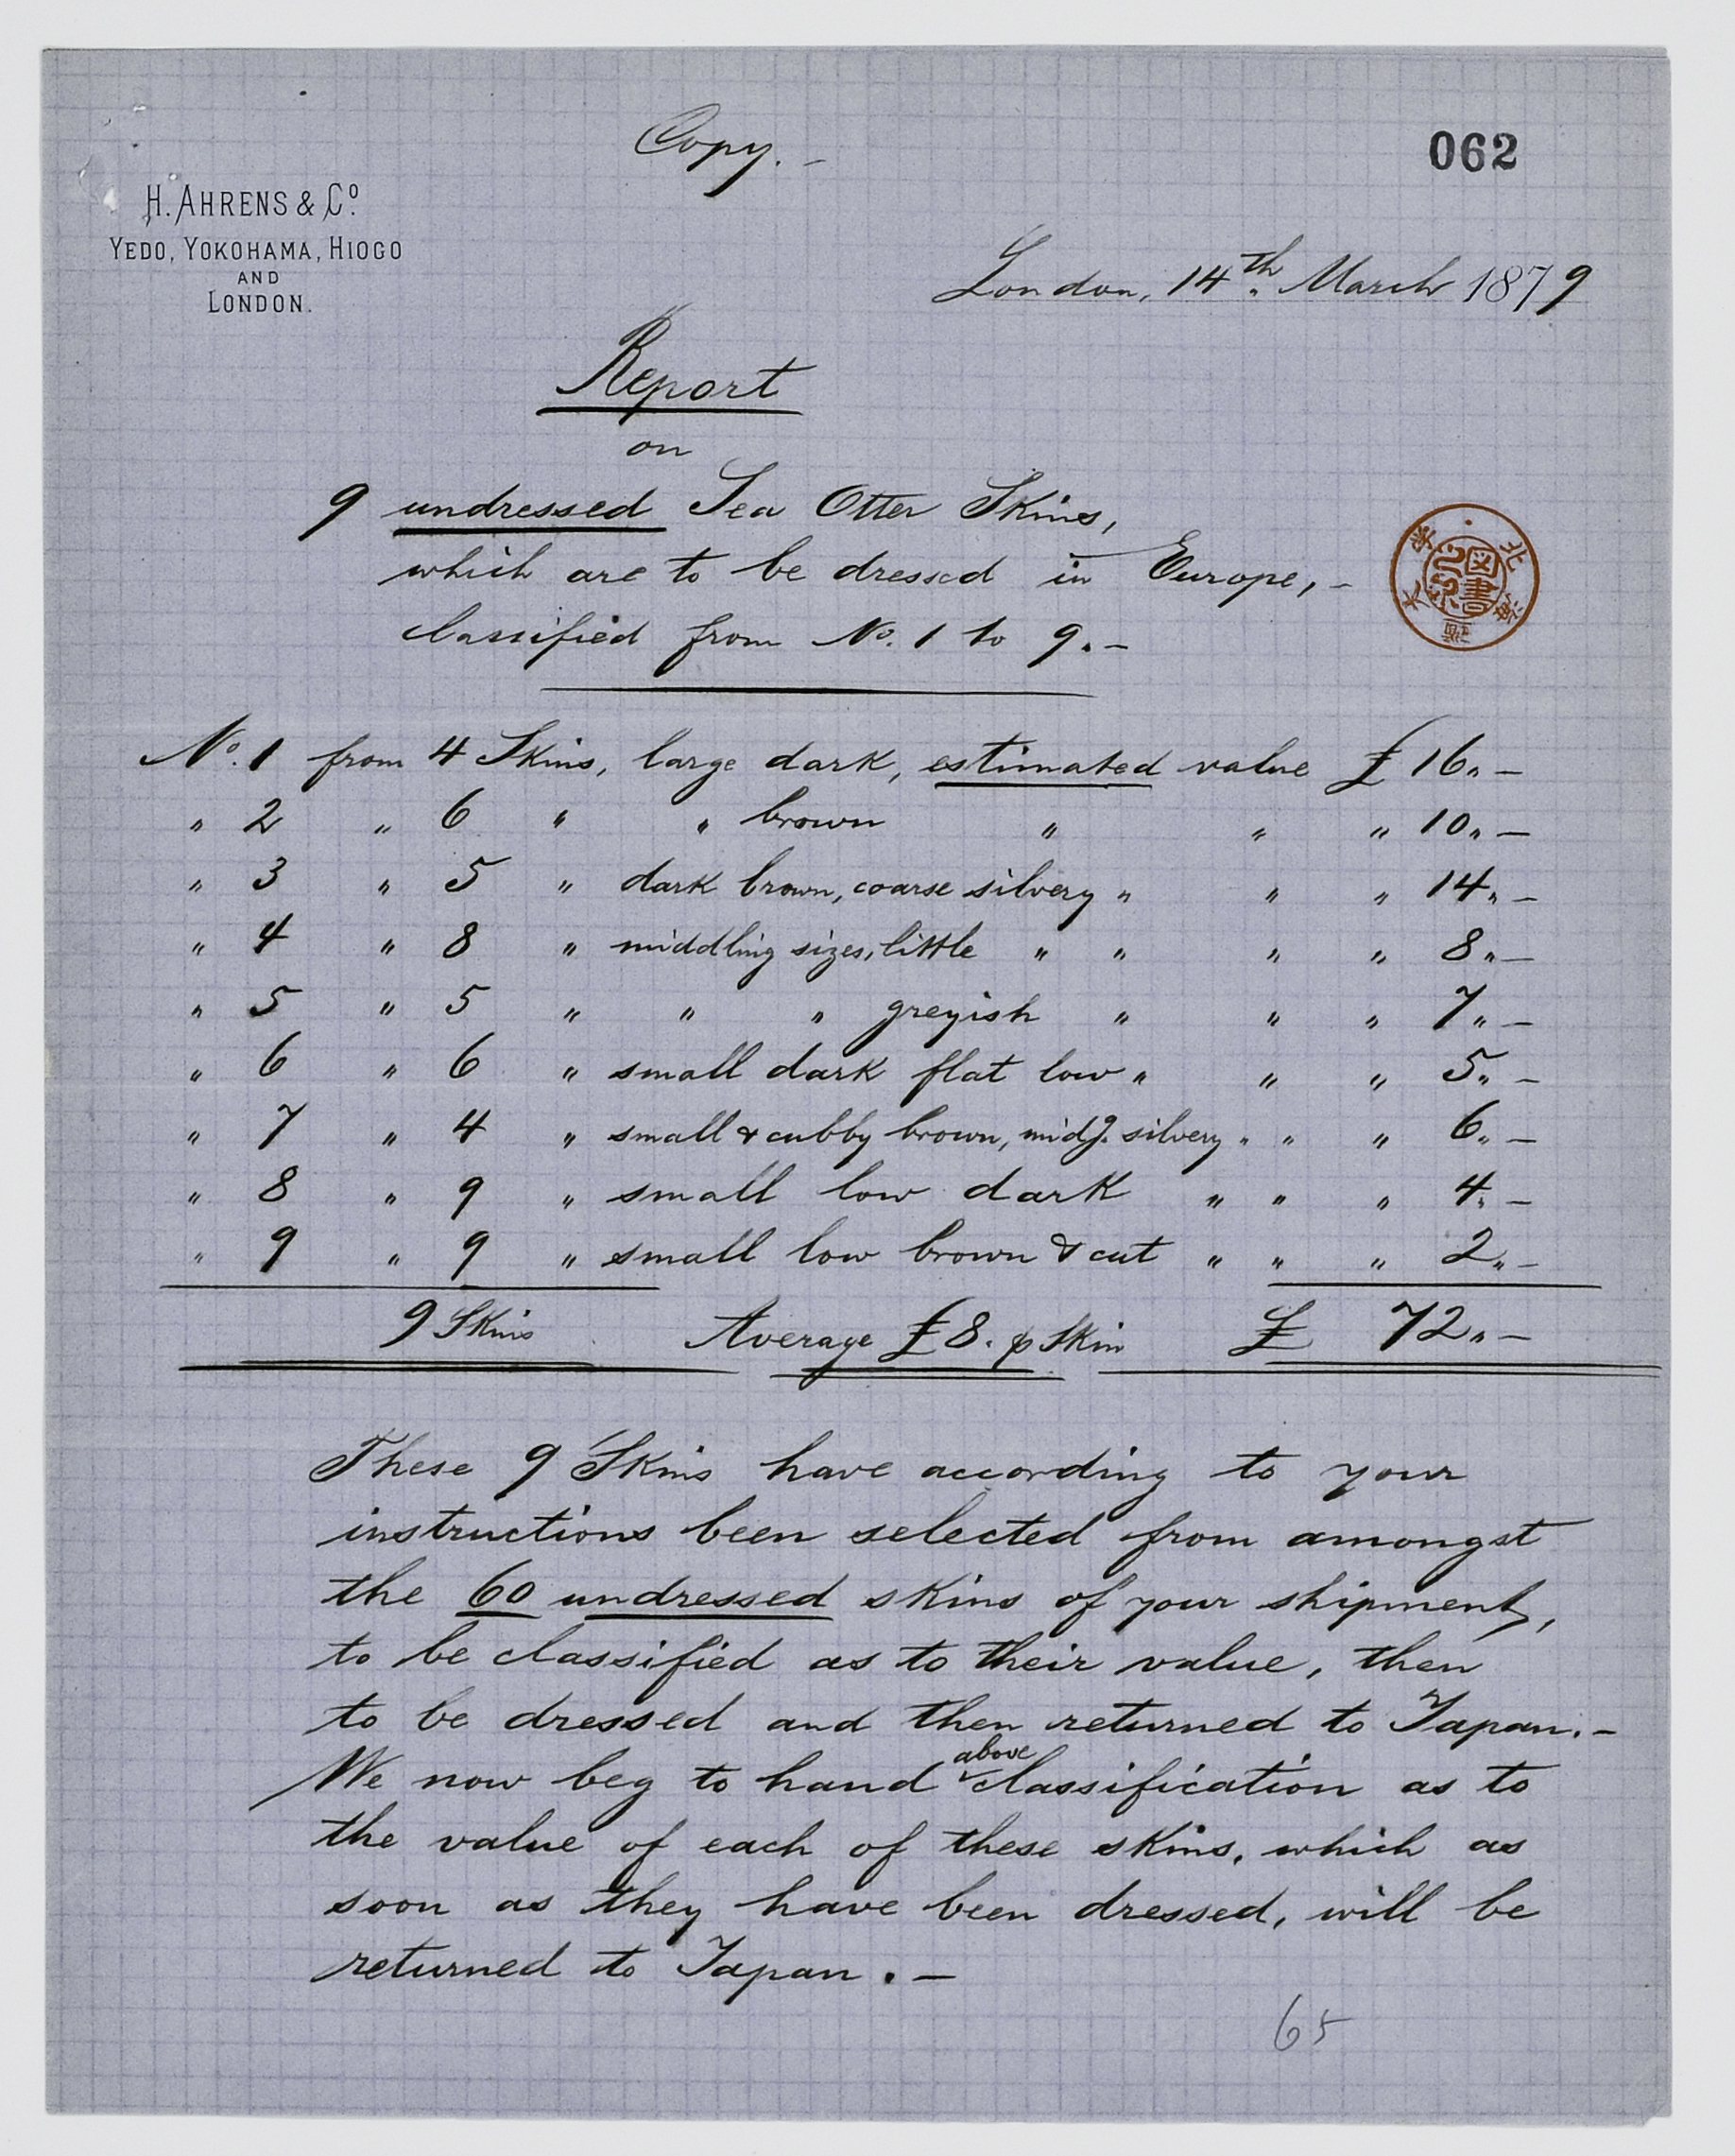 Copy. –
062
H. AHRENS & Cº.
YEDO, YOKOHAMA, HIOGO
AND
LONDON.
London, 14th. March 1879
Report
on
9 undressed Sea Otter Skins,
which are to be dressed in Europe, –
classified from No. 1 to 9. –
No. 1 from 4 Skins, large dark, estimated value £ 16 " –
" 2 " 6 " " brown " " " 10 " –
" 3 " 5 " dark brown, coarse silvery " " " 14 " –
" 4 " 8 " middling sizes, little " " " " 8 " –
" 5 " 5 " " " greyish " " " 7 " –
" 6 " 6 " small dark flat low " " " 5 " –
" 7 " 4 " small & cubby brown, midg. silvery " " " 6 " –
" 8 " 9 " small low dark " " " 4 " –
" 9 " 9 " small low brown & cut " " " 2 " –
9 Skins Average £ 8. p Skin £ 72 " –
北海道大学
図書
These 9 Skins have according to your
instructions been selected from amongst
the 60 undressed skins of your shipment,
to be classified as to their value, then
to be dressed and then returned to Japan. –
We now beg to hand above classification as to
the value of each of these skins, which as
soon as they have been dressed, will be
returned to Japan. –
65